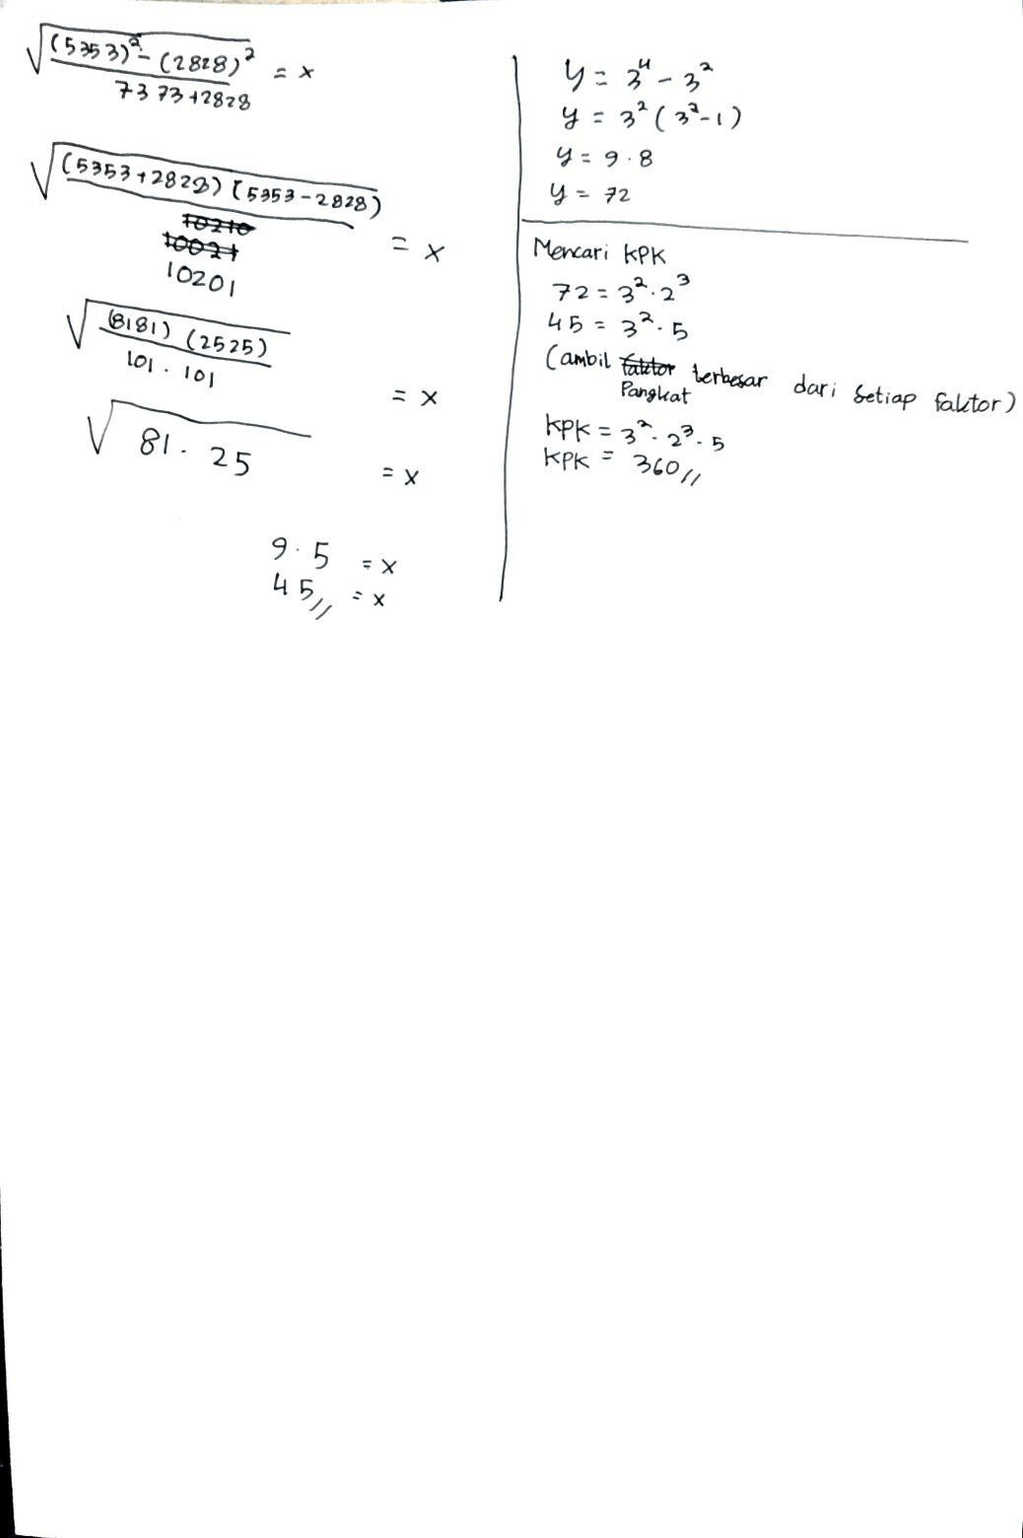 √((5353)² - (2828)²) / (7373+2828) = x
√((5353+2828) (5353-2828)) / 10201 = x
10210
10021
√((8181) (2525)) / (101 . 101) = x
√(81 . 25) = x
9 . 5 = x
45 // = x
y = 3⁴ - 3²
y = 3² (3² - 1)
y = 9 . 8
y = 72
Mencari KPK
72 = 3² . 2³
45 = 3² . 5
(ambil faktor Pangkat terbesar dari setiap faktor)
KPK = 3² . 2³ . 5
KPK = 360 //